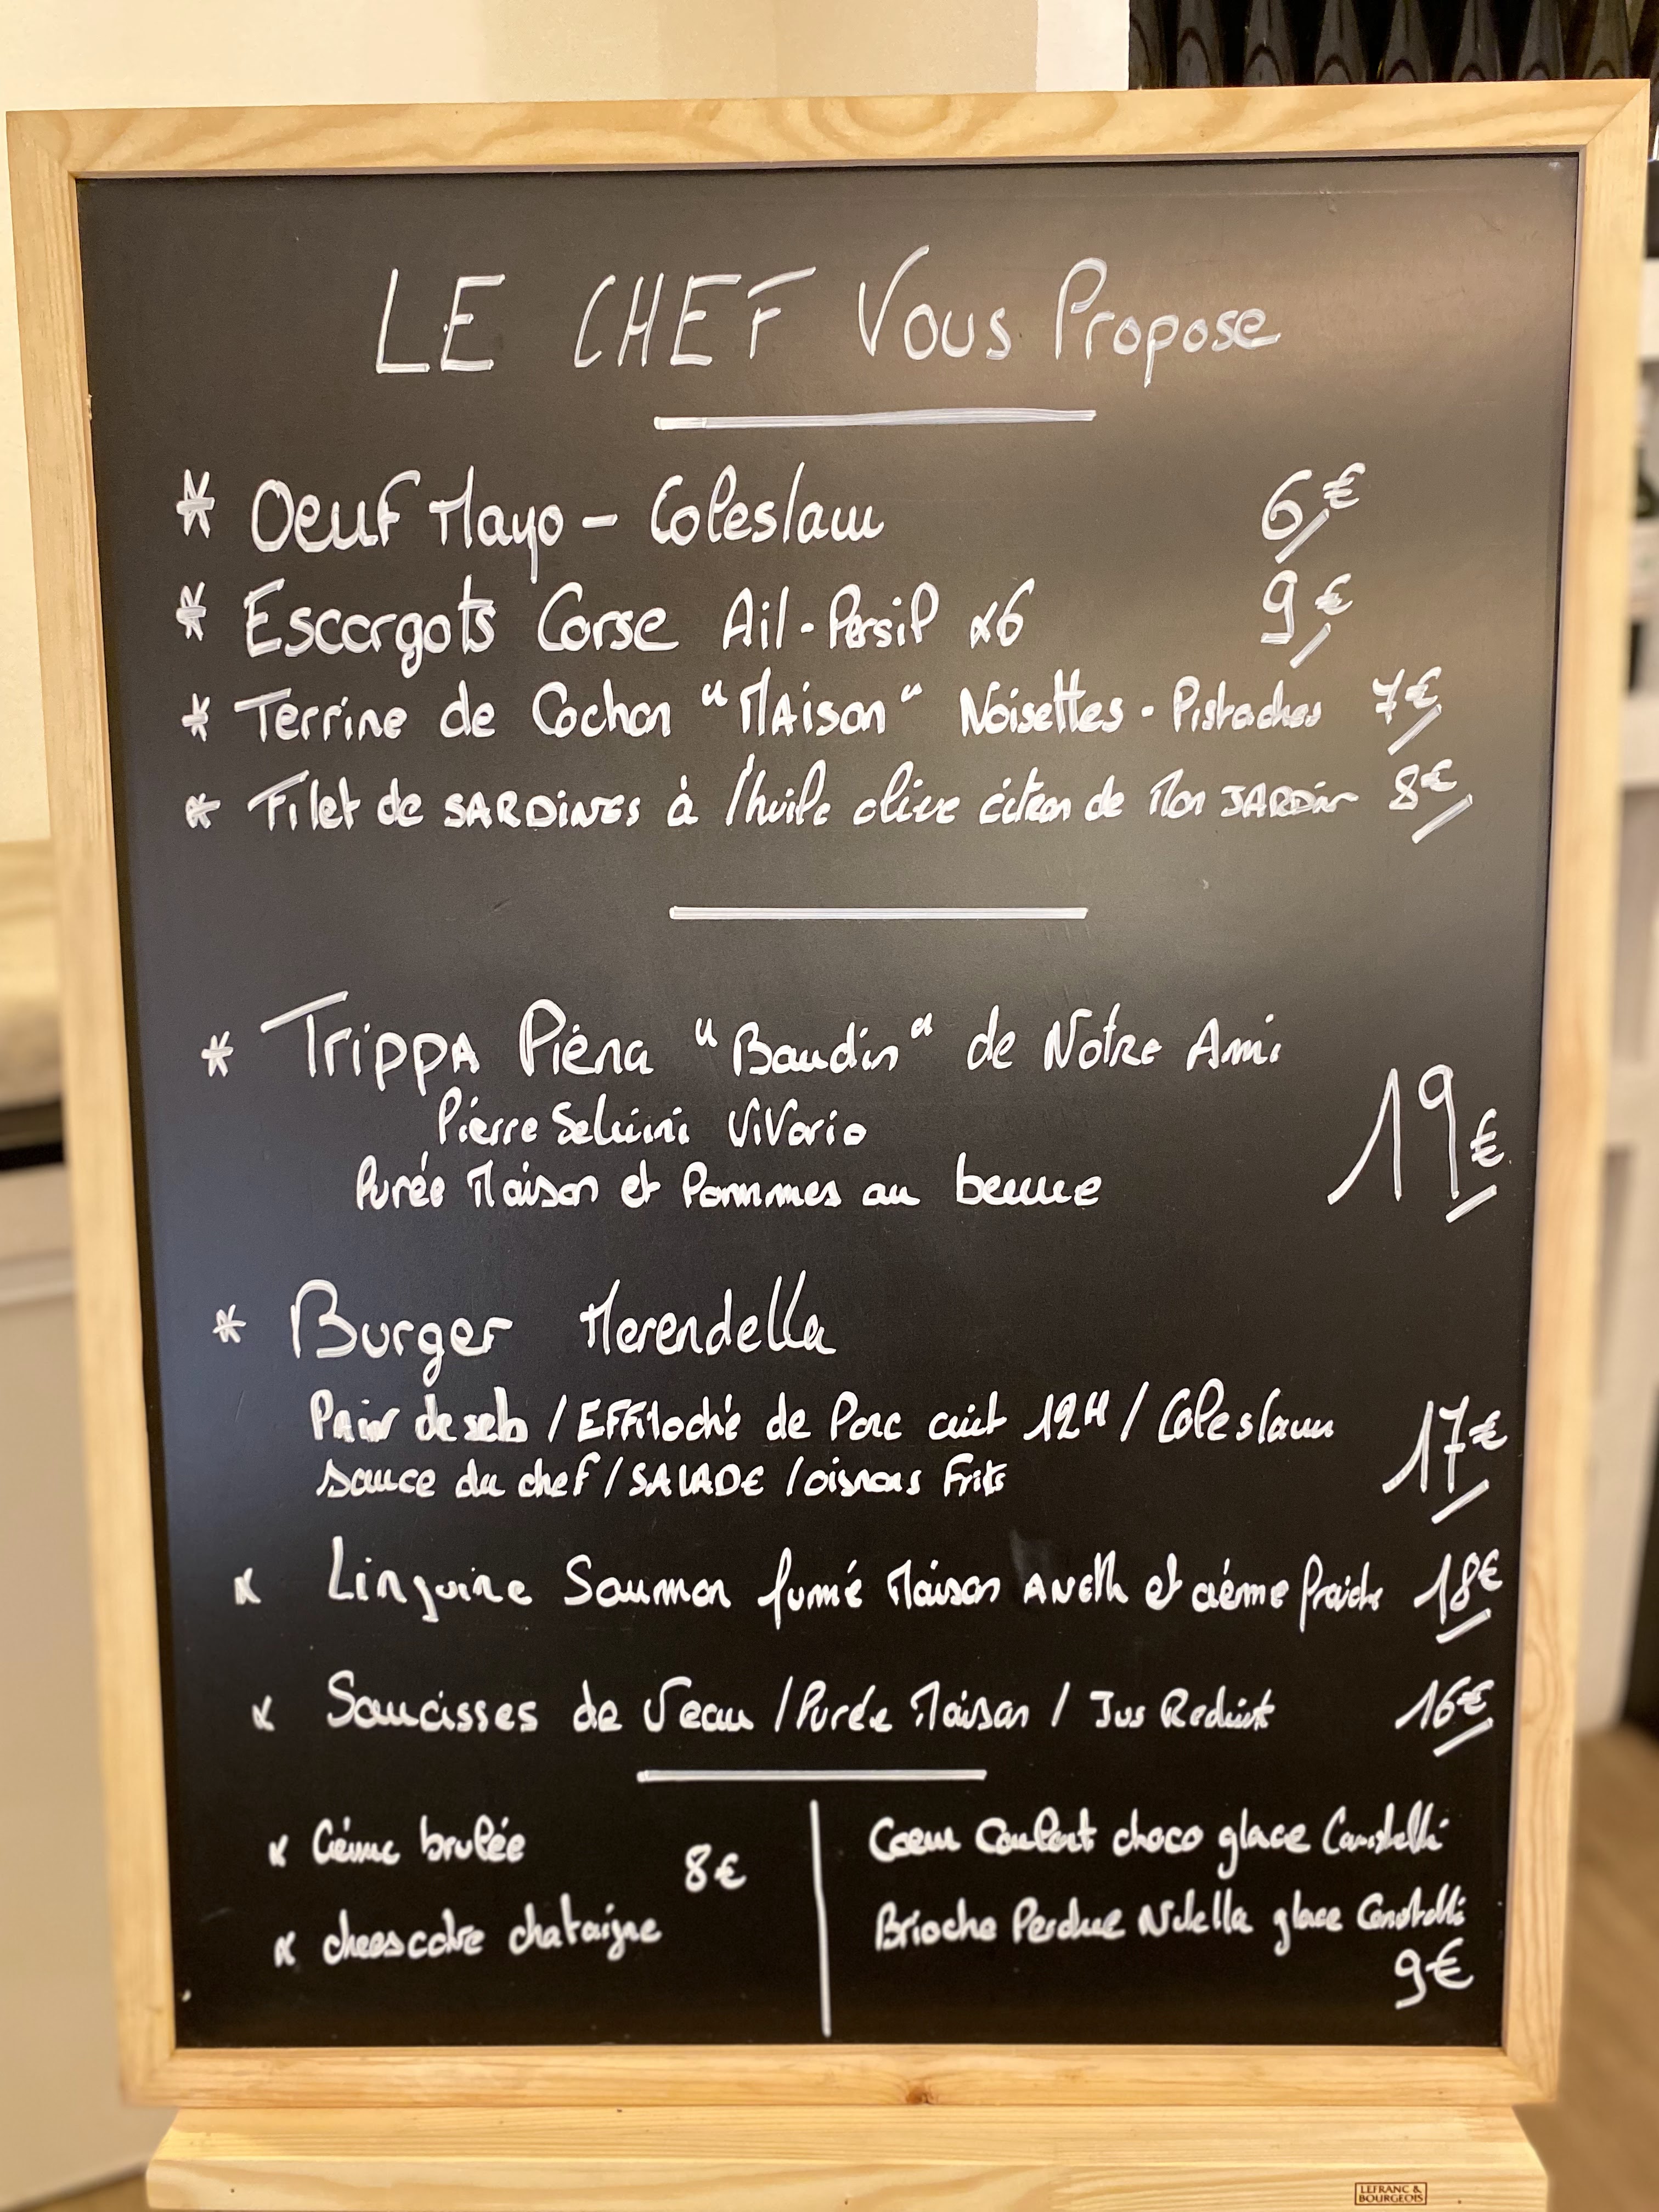 LE CHEF Vous Propose
* Oeuf Mayo - Coleslaw 6€
* Escargots Corse Ail - Persil x6 9€
* Terrine de Cochon "Maison" Noisettes - Pistaches 7€
* Filet de SARDINES à l'huile olive citron de Mon JARDIN 8€
* Trippa Piéna "Boudin" de Notre Ami
Pierre ViVario
Purée Maison et Pommes au beurre 19€
* Burger Merendella
Pain / Effiloché de Porc cuit 12H / Coleslaw
sauce du chef / SALADE / oignons Frits 17€
* Linguine Saumon fumé Maison ANETH et crème fraiche 18€
* Saucisses de Veau / Purée Maison / Jus Reduit 16€
* Crème brulée
8€
* cheescake chataigne
Coeur Coulant choco glace
Brioche Perdue Nutella glace
9€
LEFRANC &
BOURGEOIS